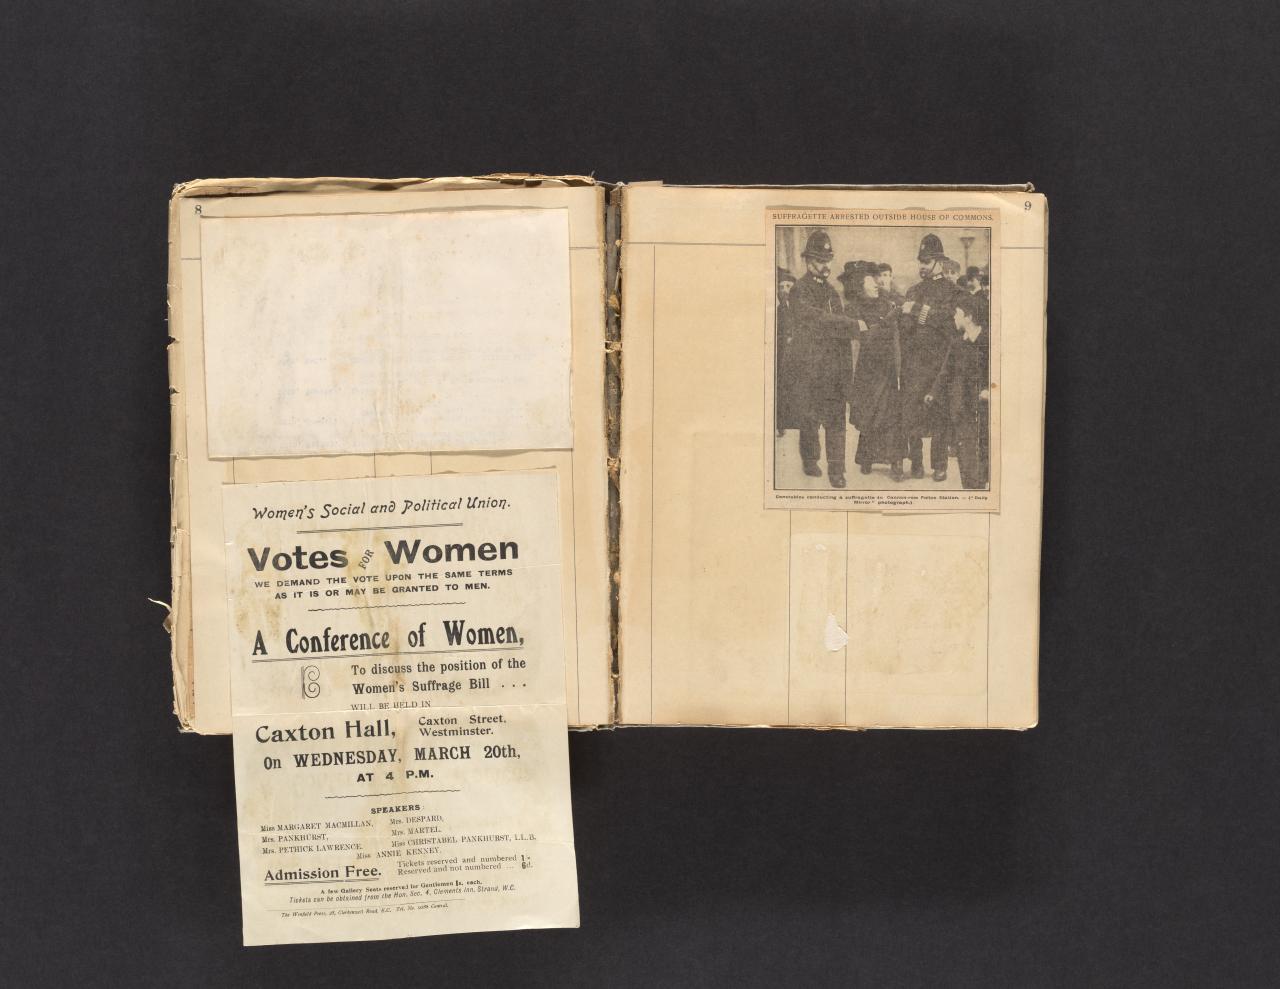 8
Women's Social and Political Union.
Votes FOR Women
WE DEMAND THE VOTE UPON THE SAME TERMS
AS IT IS OR MAY BE GRANTED TO MEN.
A Conference of Women,
To discuss the position of the
Women's Suffrage Bill . . .
WILL BE HELD IN
Caxton Hall,
Caxton Street,
Westminster.
On WEDNESDAY, MARCH 20th,
AT 4 P.M.
SPEAKERS:
Miss MARGARET MACMILLAN,
Mrs. PANKHURST,
Mrs. PETHICK LAWRENCE.
Mrs. DESPARD,
Mrs. MARTEL,
Miss CHRISTABEL PANKHURST, LL.B.
Miss ANNIE KENNEY.
Admission Free.
Tickets reserved and numbered 1/-
Reserved and not numbered ... 6d.
A few Gallery Seats reserved for Gentlemen 1s. each.
Tickets can be obtained from the Hon. Sec. 4, Clements Inn, Strand, W.C.
The Wenfeld Press, Clerkenwell Road, E.C. Tel. No. Central.
9
SUFFRAGETTE ARRESTED OUTSIDE HOUSE OF COMMONS.
Constables conducting a suffragette to Cannon-row Police Station. — ("Daily
Mirror" photograph.)